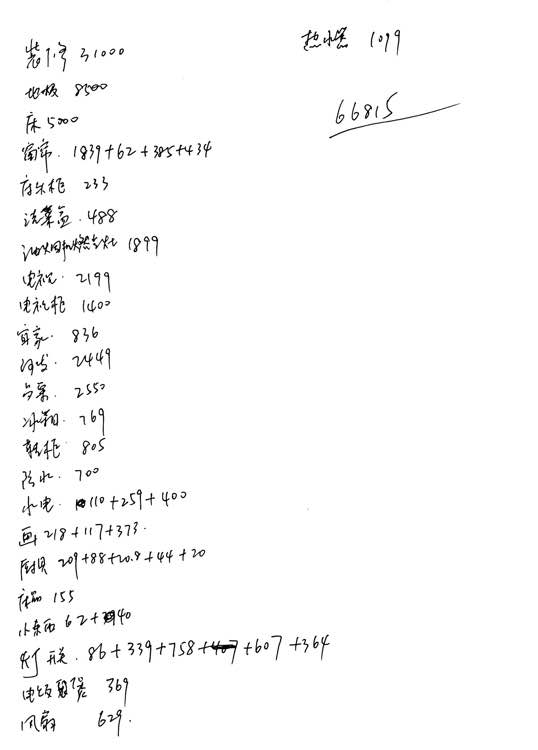 装修 31000
地板 8500
床 5000
窗帘. 1839+62+385+434
床头柜 233
洗菜盆. 488
油烟机燃气灶 1899
电视. 2199
电视柜 1400
宜家. 836
沙发. 2449
2550
冰箱. 769
鞋柜 805
防水. 700
水电. 110+259+400
画 218+117+373.
厨具 209+88+20.8+44+20
床品 155
小东西 62+40
灯 开关. 86+339+758+607+364
369
风扇 629.
热水器 1099
66815